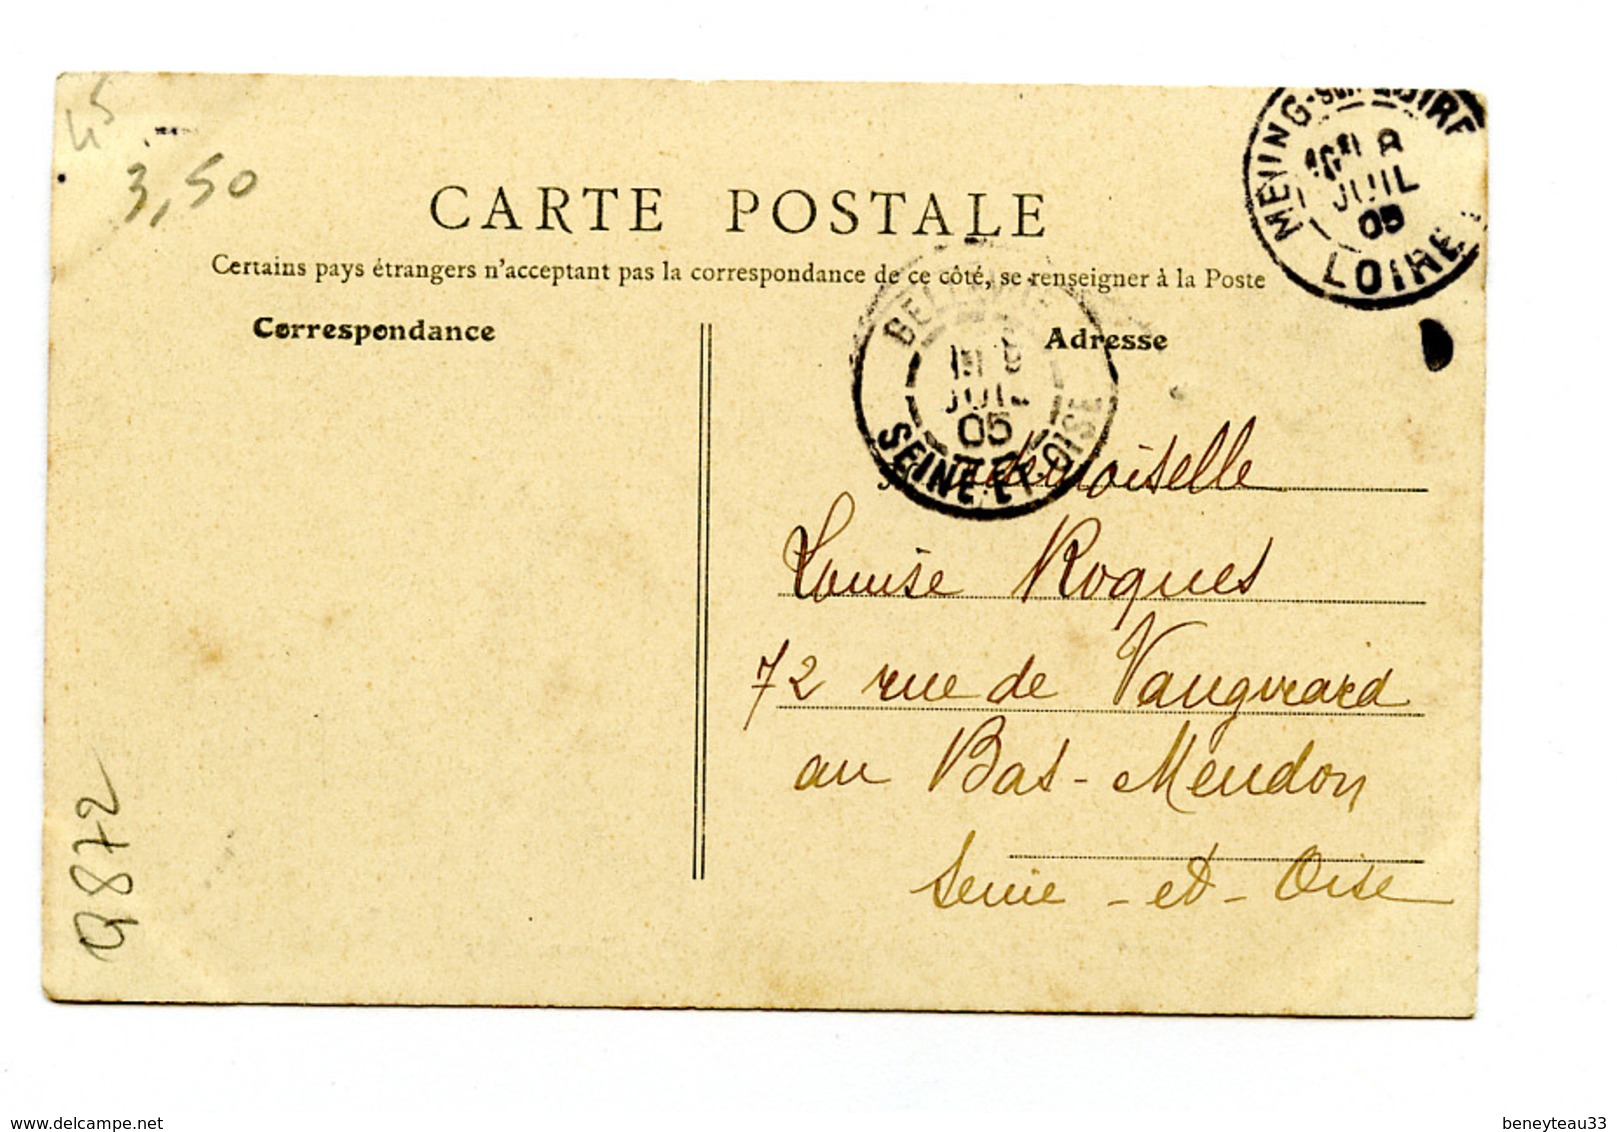 45
3,50
CARTE POSTALE
Certains pays étrangers n'acceptant pas la correspondance de ce côté, se renseigner à la Poste
Correspondance
Adresse
MEUNG-SUR-LOIRE
8
JUIL
05
LOIRET
JUIL
05
SEINE-ET-OISE
Mademoiselle
Louise Roques
72 rue de Vaugirard
au Bas-Meudon
Seine-et-Oise
9872
delcampe.net
beneyteau33